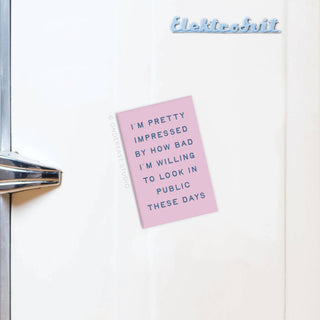 ElektroSvit
I'M PRETTY
IMPRESSED
BY HOW BAD
I'M WILLING
TO LOOK IN
PUBLIC
THESE DAYS